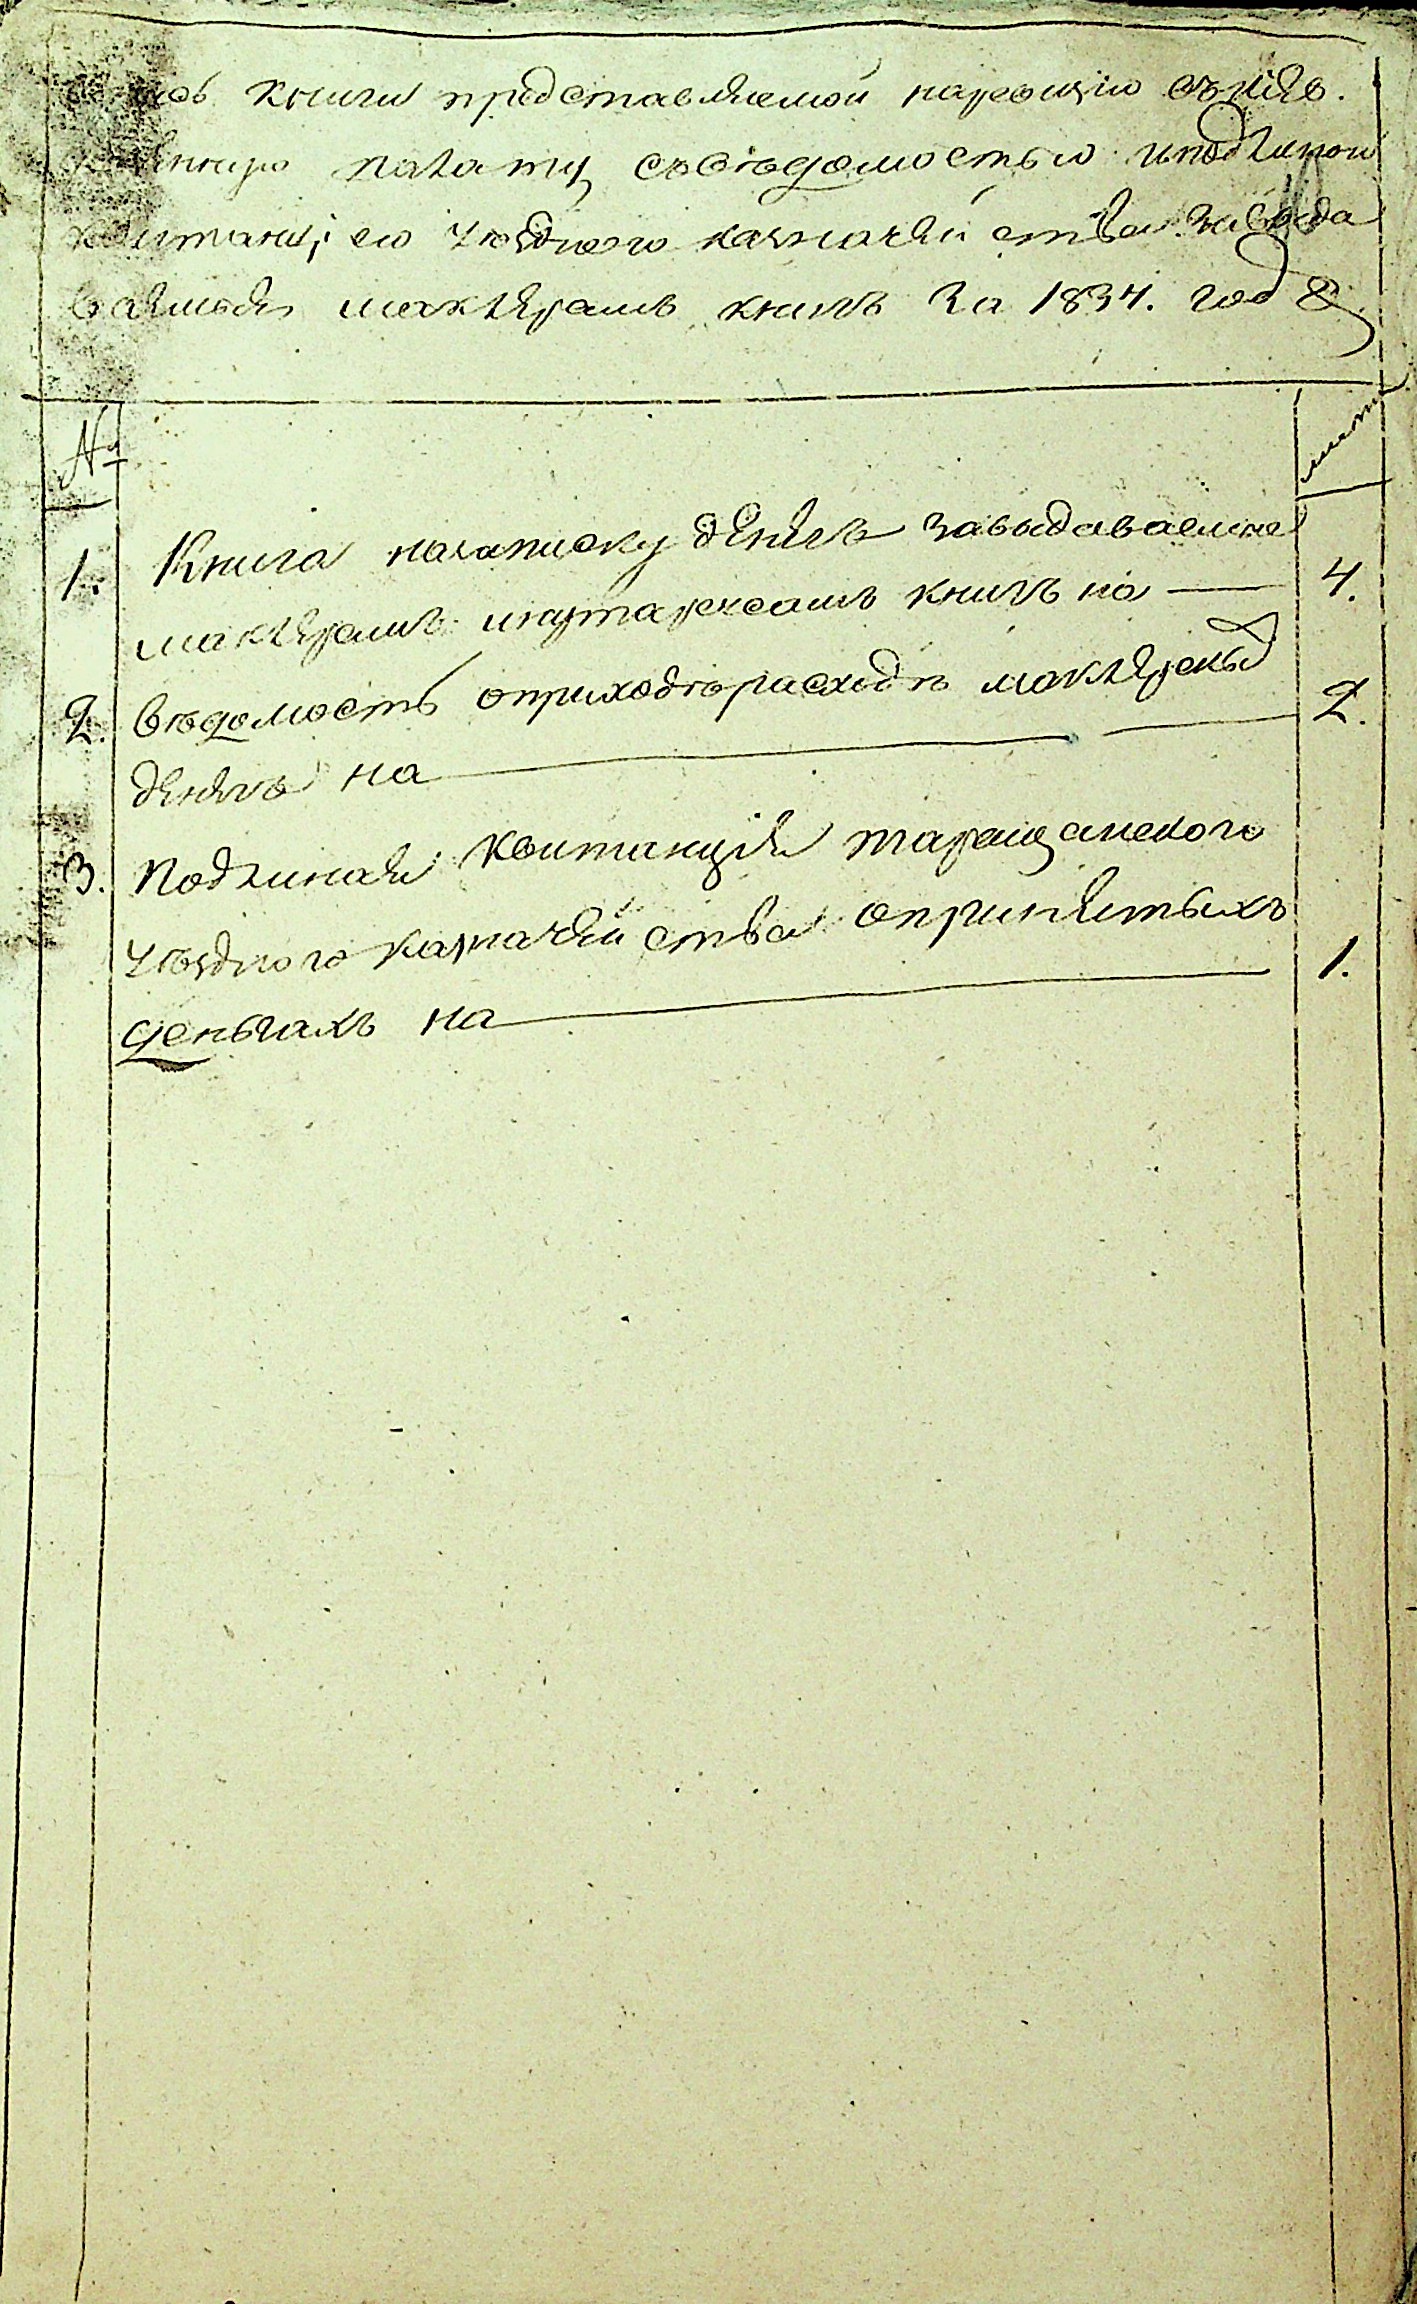 книги представляемой наревизію въкіев.
палату съвѣдомостью иподлиной
квитанціею уѣзднаго казначейства завыда
ваемыя маклерамъ книгъ за 1834. год
№ лист
1. Книга назаписку денегъ завыдаваемые
маклерамъ инутариюсамъ книгъ на 4.
2. Ведомость оприходѣ ирасходѣ маклерскихъ 2.
денегъ на
3. Подлиная квитанція таращанского
уѣздного казначейства опринятыхъ
деньгахъ на 1.